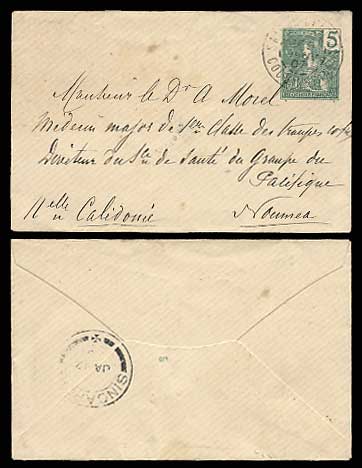 5
Monsieur le Dr A Morel
Médecin major de 1ère Classe des troupes col
Directeur du Sce de Santé du Groupe du
Pacifique
Nelle Calédonie Nouméa
SINGAP
JA